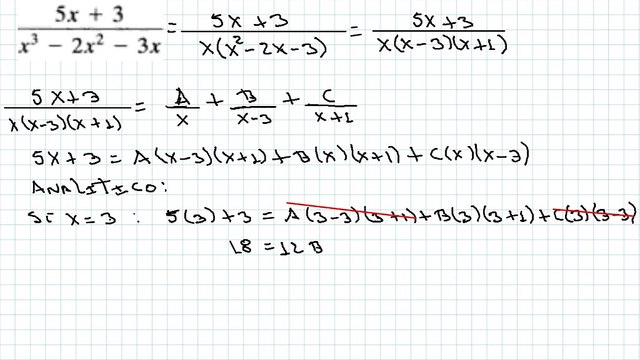 (5x + 3)/(x³ − 2x² − 3x) = (5x + 3)/(x(x² − 2x − 3)) = (5x + 3)/(x(x − 3)(x + 1))
(5x + 3)/(x(x − 3)(x + 1)) = A/x + B/(x − 3) + C/(x + 1)
5x + 3 = A(x − 3)(x + 1) + B(x)(x + 1) + C(x)(x − 3)
ANALITICO:
Si x = 3 : 5(3) + 3 = A(3 − 3)(3 + 1) + B(3)(3 + 1) + C(3)(3 − 3)
18 = 12B